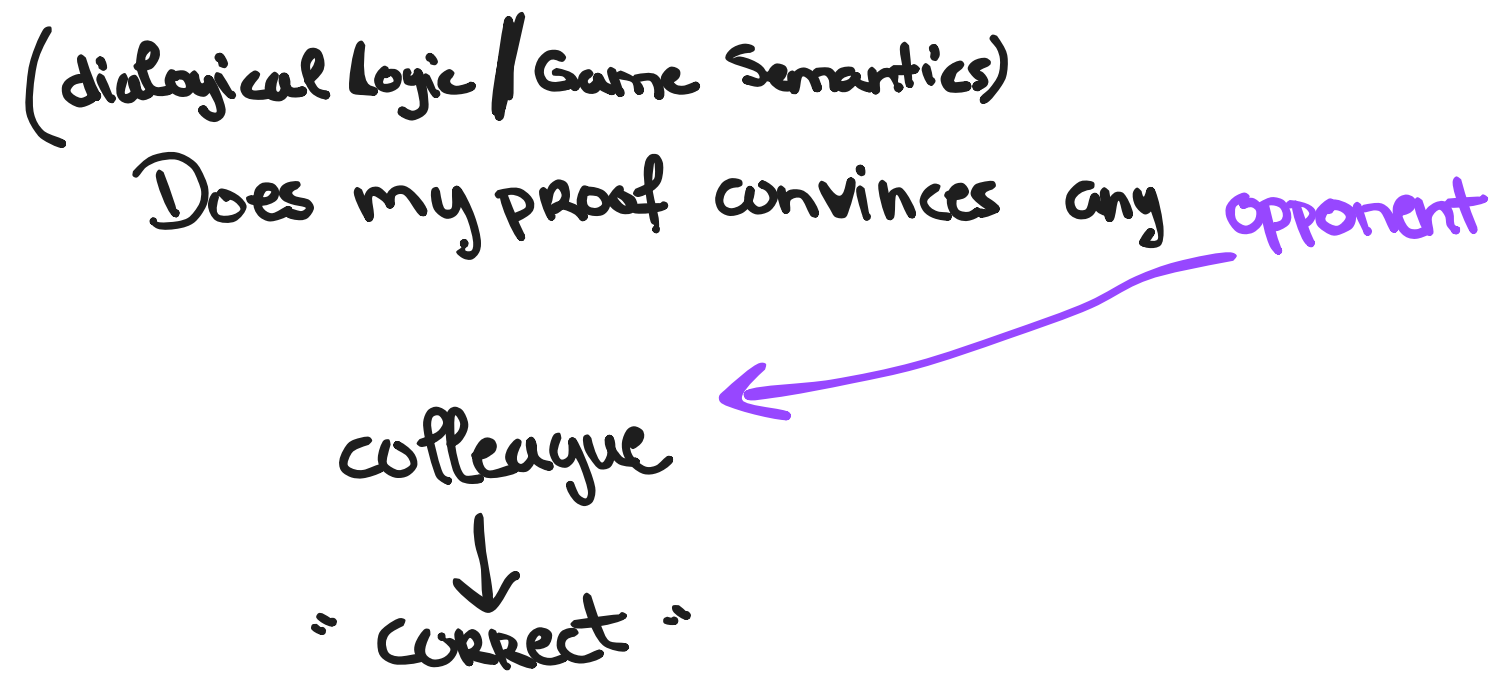 (dialogical Logic / Game Semantics)
Does my proof convinces any opponent
colleague
"correct"